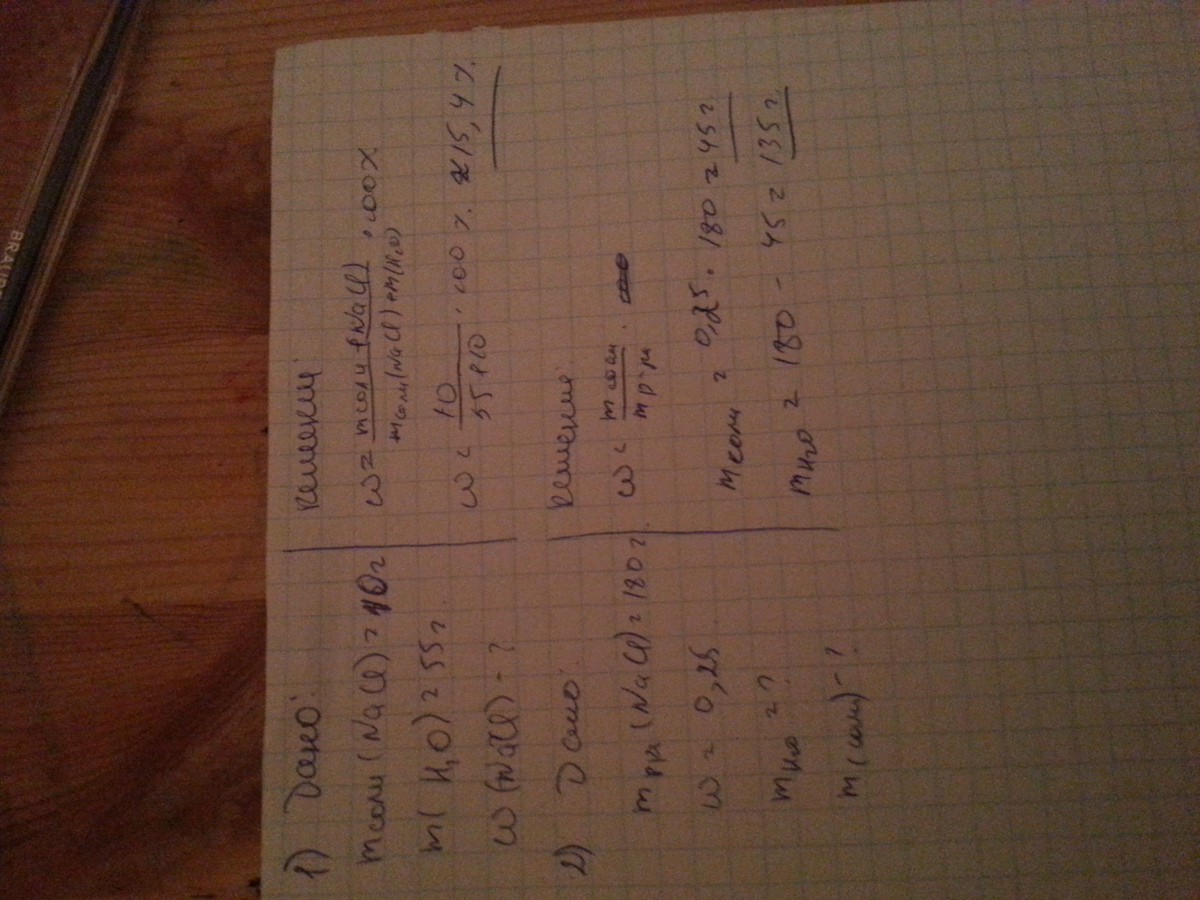 1) Дано:
m соли (NaCl) = 10г
m(H2O) = 55г.
ω(NaCl) - ?
Решение:
ω = m соли (NaCl) / m соли (NaCl) + m(H2O) · 100%
ω = 10 / 55+10 · 100% ≈ 15,4%
2) Дано:
m р-ра (NaCl) = 180г.
ω = 0,25
m H2O = ?
m(соли) - ?
Решение:
ω = m соли / m р-ра
m соли = 0,25 · 180 = 45г
m H2O = 180 - 45 = 135г.